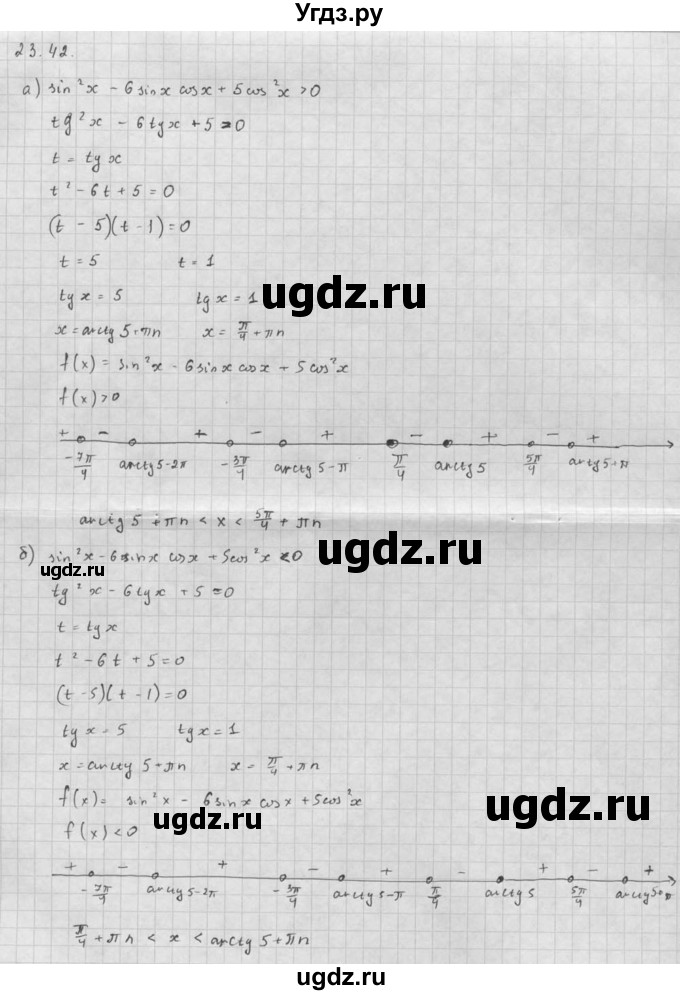 Угдз.ру
23.42.
а) sin²x - 6 sinx cosx + 5 cos²x > 0
tg²x - 6tgx + 5 = 0
t = tgx
t² - 6t + 5 = 0
(t - 5)(t - 1) = 0
t = 5 t = 1
tgx = 5 tgx = 1
ugdz.ru
x = arctg 5 + πn x = π/4 + πn
f(x) = sin²x - 6 sinx cosx + 5 cos²x
f(x) > 0
+ - + - + - + - +
-7π/4 arctg 5-2π -3π/4 arctg 5-π π/4 arctg 5 5π/4 arctg 5+π
arctg 5 + πn < x < 5π/4 + πn
ugdz.ru
б) sin²x - 6 sinx cosx + 5cos²x < 0
ugdz.ru
tg²x - 6tgx + 5 = 0
t = tgx
t² - 6t + 5 = 0
(t - 5)(t - 1) = 0
tgx = 5 tgx = 1
x = arctg 5 + πn x = π/4 + πn
f(x) = sin²x - 6 sinx cosx + 5cos²x
ugdz.ru
ugdz.ru
f(x) < 0
+ - + - + - + - +
-7π/4 arctg 5-2π -3π/4 arctg 5-π π/4 arctg 5 5π/4 arctg 5+π
π/4 + πn < x < arctg 5 + πn
ugdz.ru
ugdz.ru